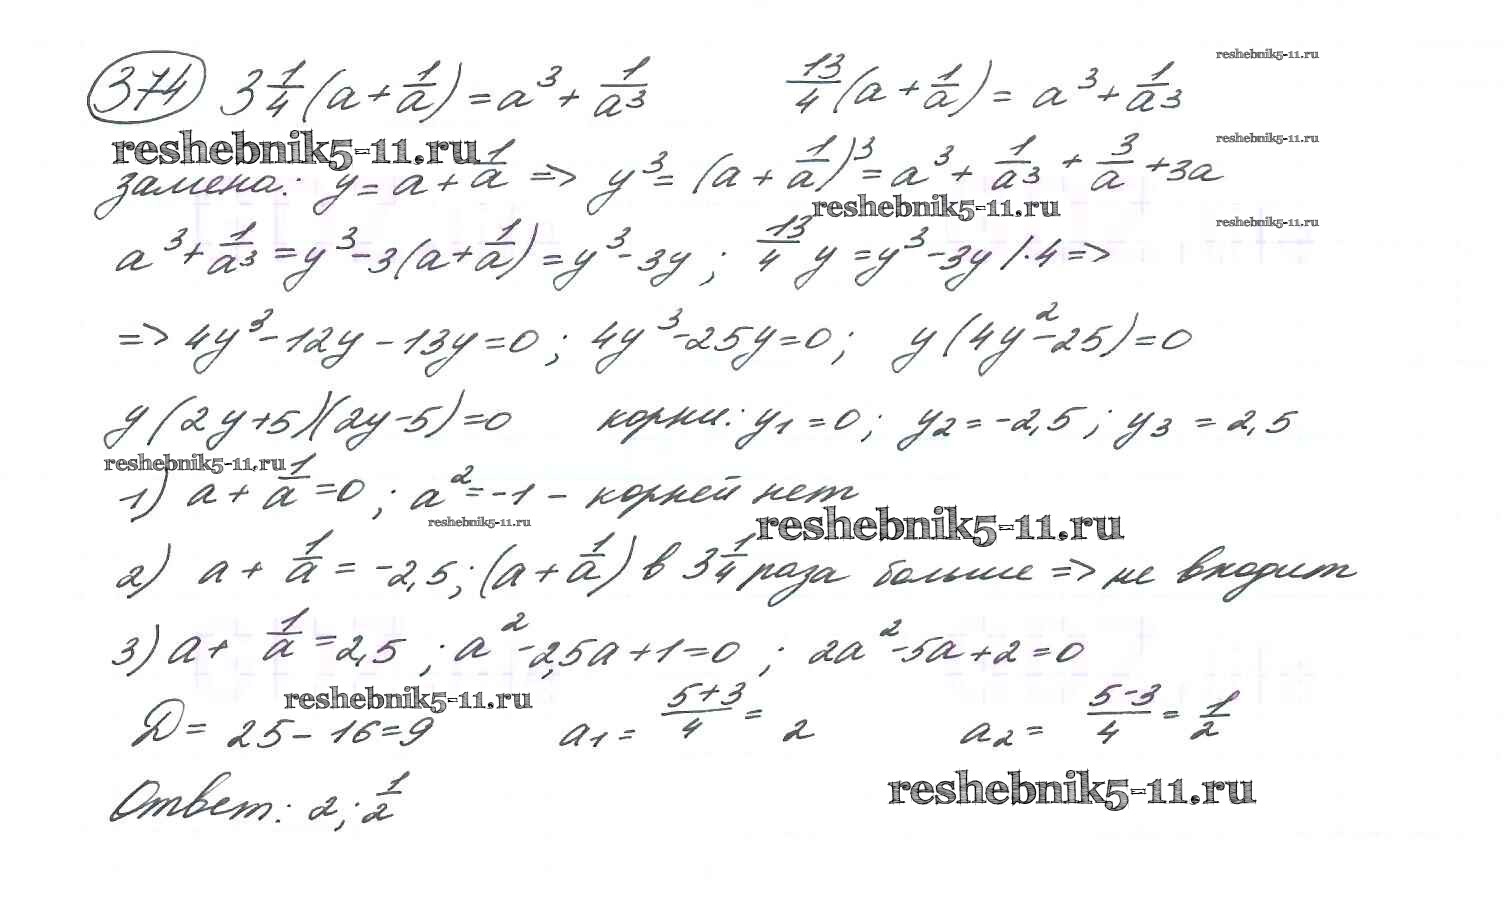 374 3 1/4 (a + 1/a) = a³ + 1/a³ 13/4 (a + 1/a) = a³ + 1/a³
reshebnik5-11.ru
reshebnik5-11.ru
reshebnik5-11.ru
замена: y = a + 1/a => y³ = (a + 1/a)³ = a³ + 1/a³ + 3/a + 3a
reshebnik5-11.ru
reshebnik5-11.ru
a³ + 1/a³ = y³ - 3(a + 1/a) = y³ - 3y ; 13/4 y = y³ - 3y /·4 =>
=> 4y³ - 12y - 13y = 0 ; 4y³ - 25y = 0 ; y(4y² - 25) = 0
y(2y+5)(2y-5) = 0 корни: y₁ = 0 ; y₂ = -2,5 ; y₃ = 2,5
reshebnik5-11.ru
1) a + 1/a = 0 ; a² = -1 - корней нет
reshebnik5-11.ru
reshebnik5-11.ru
2) a + 1/a = -2,5 ; (a + 1/a) в 3 1/4 раза больше => не входит
3) a + 1/a = 2,5 ; a² - 2,5a + 1 = 0 ; 2a² - 5a + 2 = 0
reshebnik5-11.ru
D = 25 - 16 = 9 a₁ = (5+3)/4 = 2 a₂ = (5-3)/4 = 1/2
reshebnik5-11.ru
Ответ: 2; 1/2